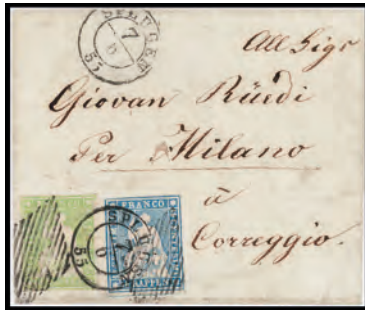 SPLÜGEN
7
6
55
All Sigr
Giovan Rüedi
Per Milano
à
Correggio.
FRANCO
SPLÜGEN
7
6
55
RAPPEN